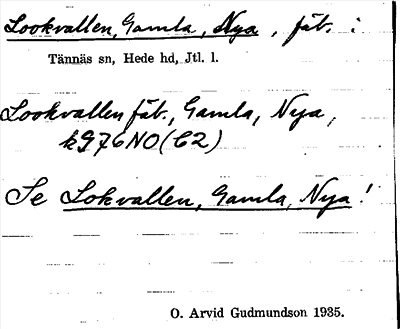 Lookvallen, Gamla, Nya, fäb. :
Tännäs sn, Hede hd, Jtl. l.
Lookvallen fäb., Gamla, Nya,
k976NO(C2)
Se Lokvallen, Gamla, Nya!
O. Arvid Gudmundson 1935.